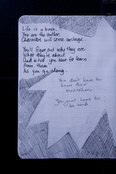 Life is a book.
You are the author.
Characters will come and go.
You'll figure out who they are
What they're about
And what you have to learn
from them
As you go along.
You don't have to
have their
You just have to
be